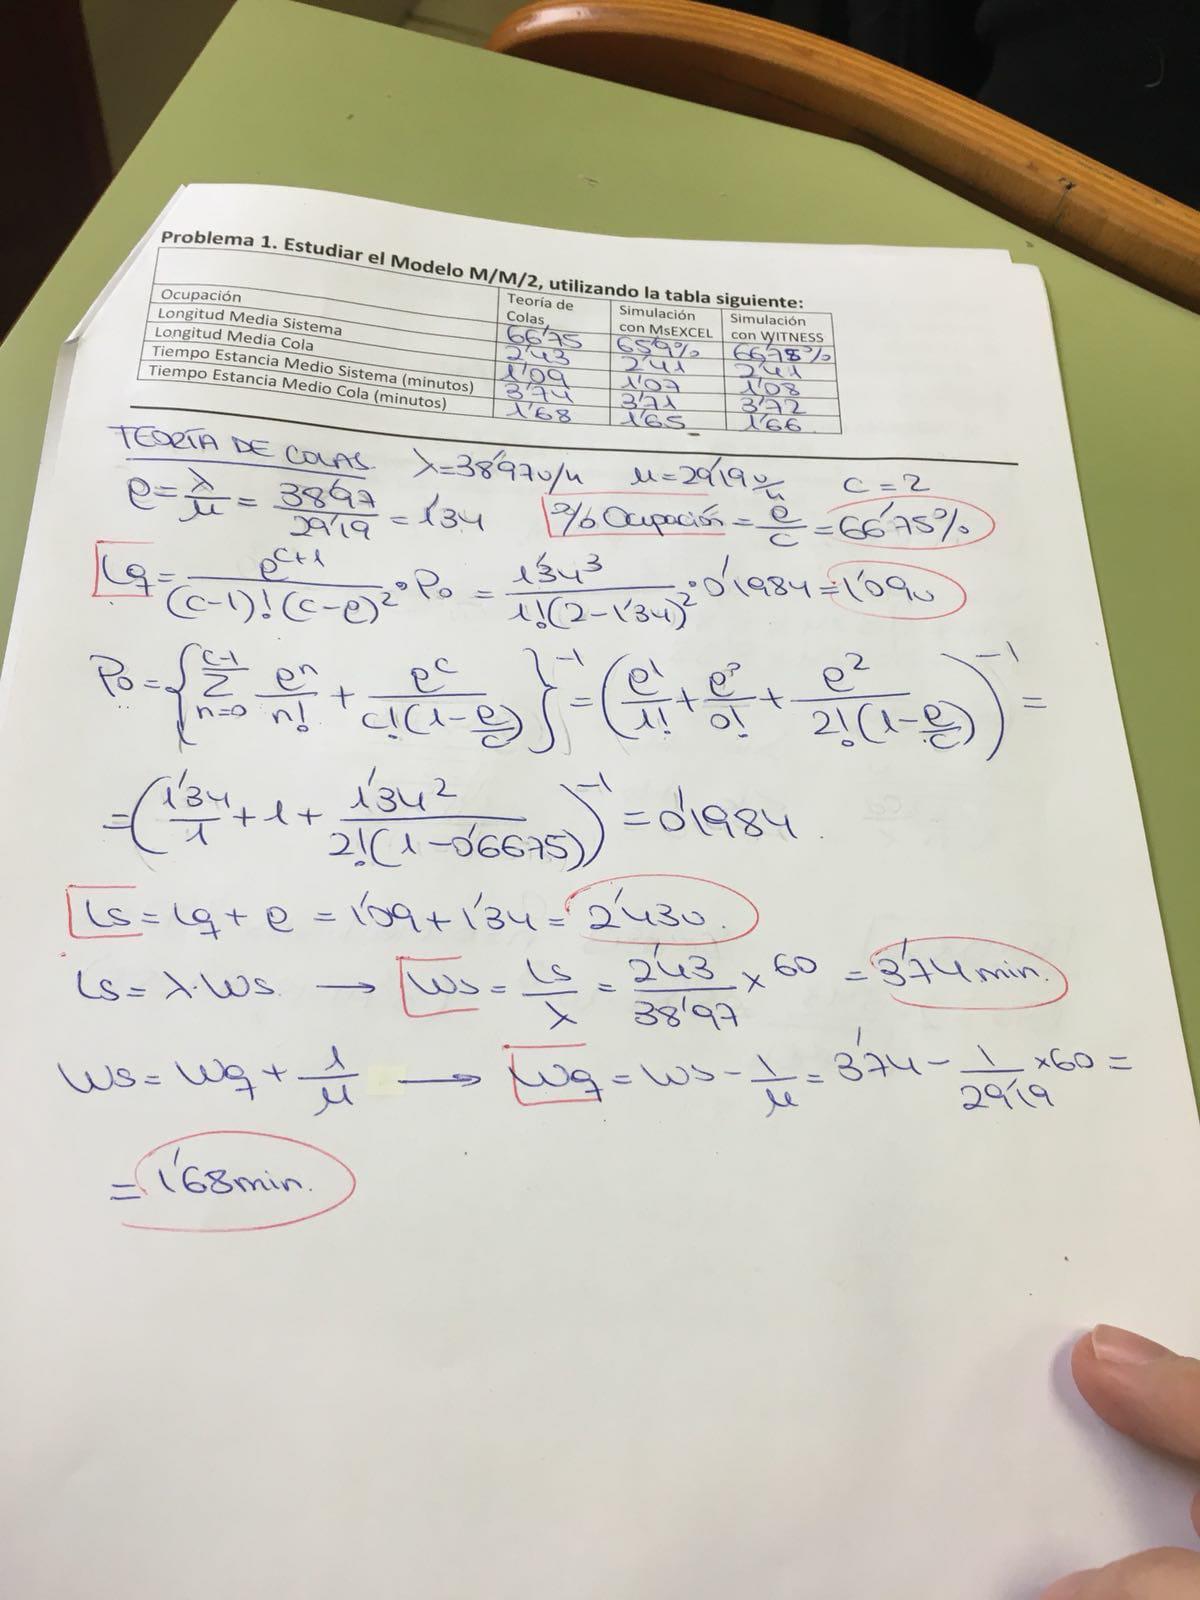 Problema 1. Estudiar el Modelo M/M/2, utilizando la tabla siguiente:
Teoría de Colas | Simulación con MsEXCEL | Simulación con WITNESS
Ocupación | 66'75 | 65'9% | 66'78%
Longitud Media Sistema | 2'43 | 2'41 | 2'41
Longitud Media Cola | 1'09 | 1'07 | 1'08
Tiempo Estancia Medio Sistema (minutos) | 3'74 | 3'71 | 3'72
Tiempo Estancia Medio Cola (minutos) | 1'68 | 1'65 | 1'66
TEORÍA DE COLAS. λ=38'97 u/h μ=29'19 u/h c=2
ρ = λ/μ = 38'97/29'19 = 1'34 % Ocupación = ρ/c = 66'75%
Lq = ρ^(c+1)/((c-1)!(c-ρ)²) · Po = 1'34³/(1!(2-1'34)²) · 0'1984 = 1'09 u
Po = {Σ_(n=0)^(c-1) ρ^n/n! + ρ^c/(c!(1-ρ/c))}^-1 = (ρ¹/1! + ρ⁰/0! + ρ²/(2!(1-ρ/c)))^-1 =
= (1'34/1 + 1 + 1'34²/(2!(1-0'6675)))^-1 = 0'1984.
Ls = Lq + ρ = 1'09 + 1'34 = 2'43 u.
Ls = λ·Ws. → Ws = Ls/λ = 2'43/38'97 x 60 = 3'74 min.
Ws = Wq + 1/μ → Wq = Ws - 1/μ = 3'74 - 1/29'19 x 60 =
= 1'68 min.